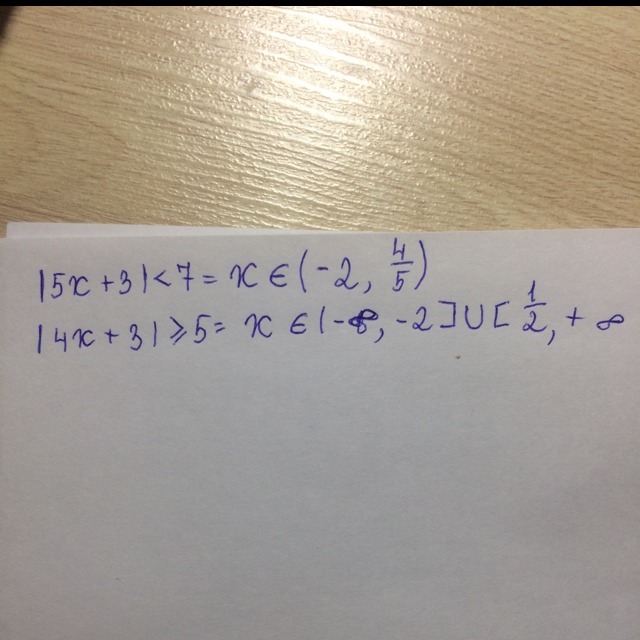 |5x+3|<7= x ∈ (-2, 4/5)
|4x+3|⩾5= x ∈ (-∞, -2]∪[1/2, + ∞